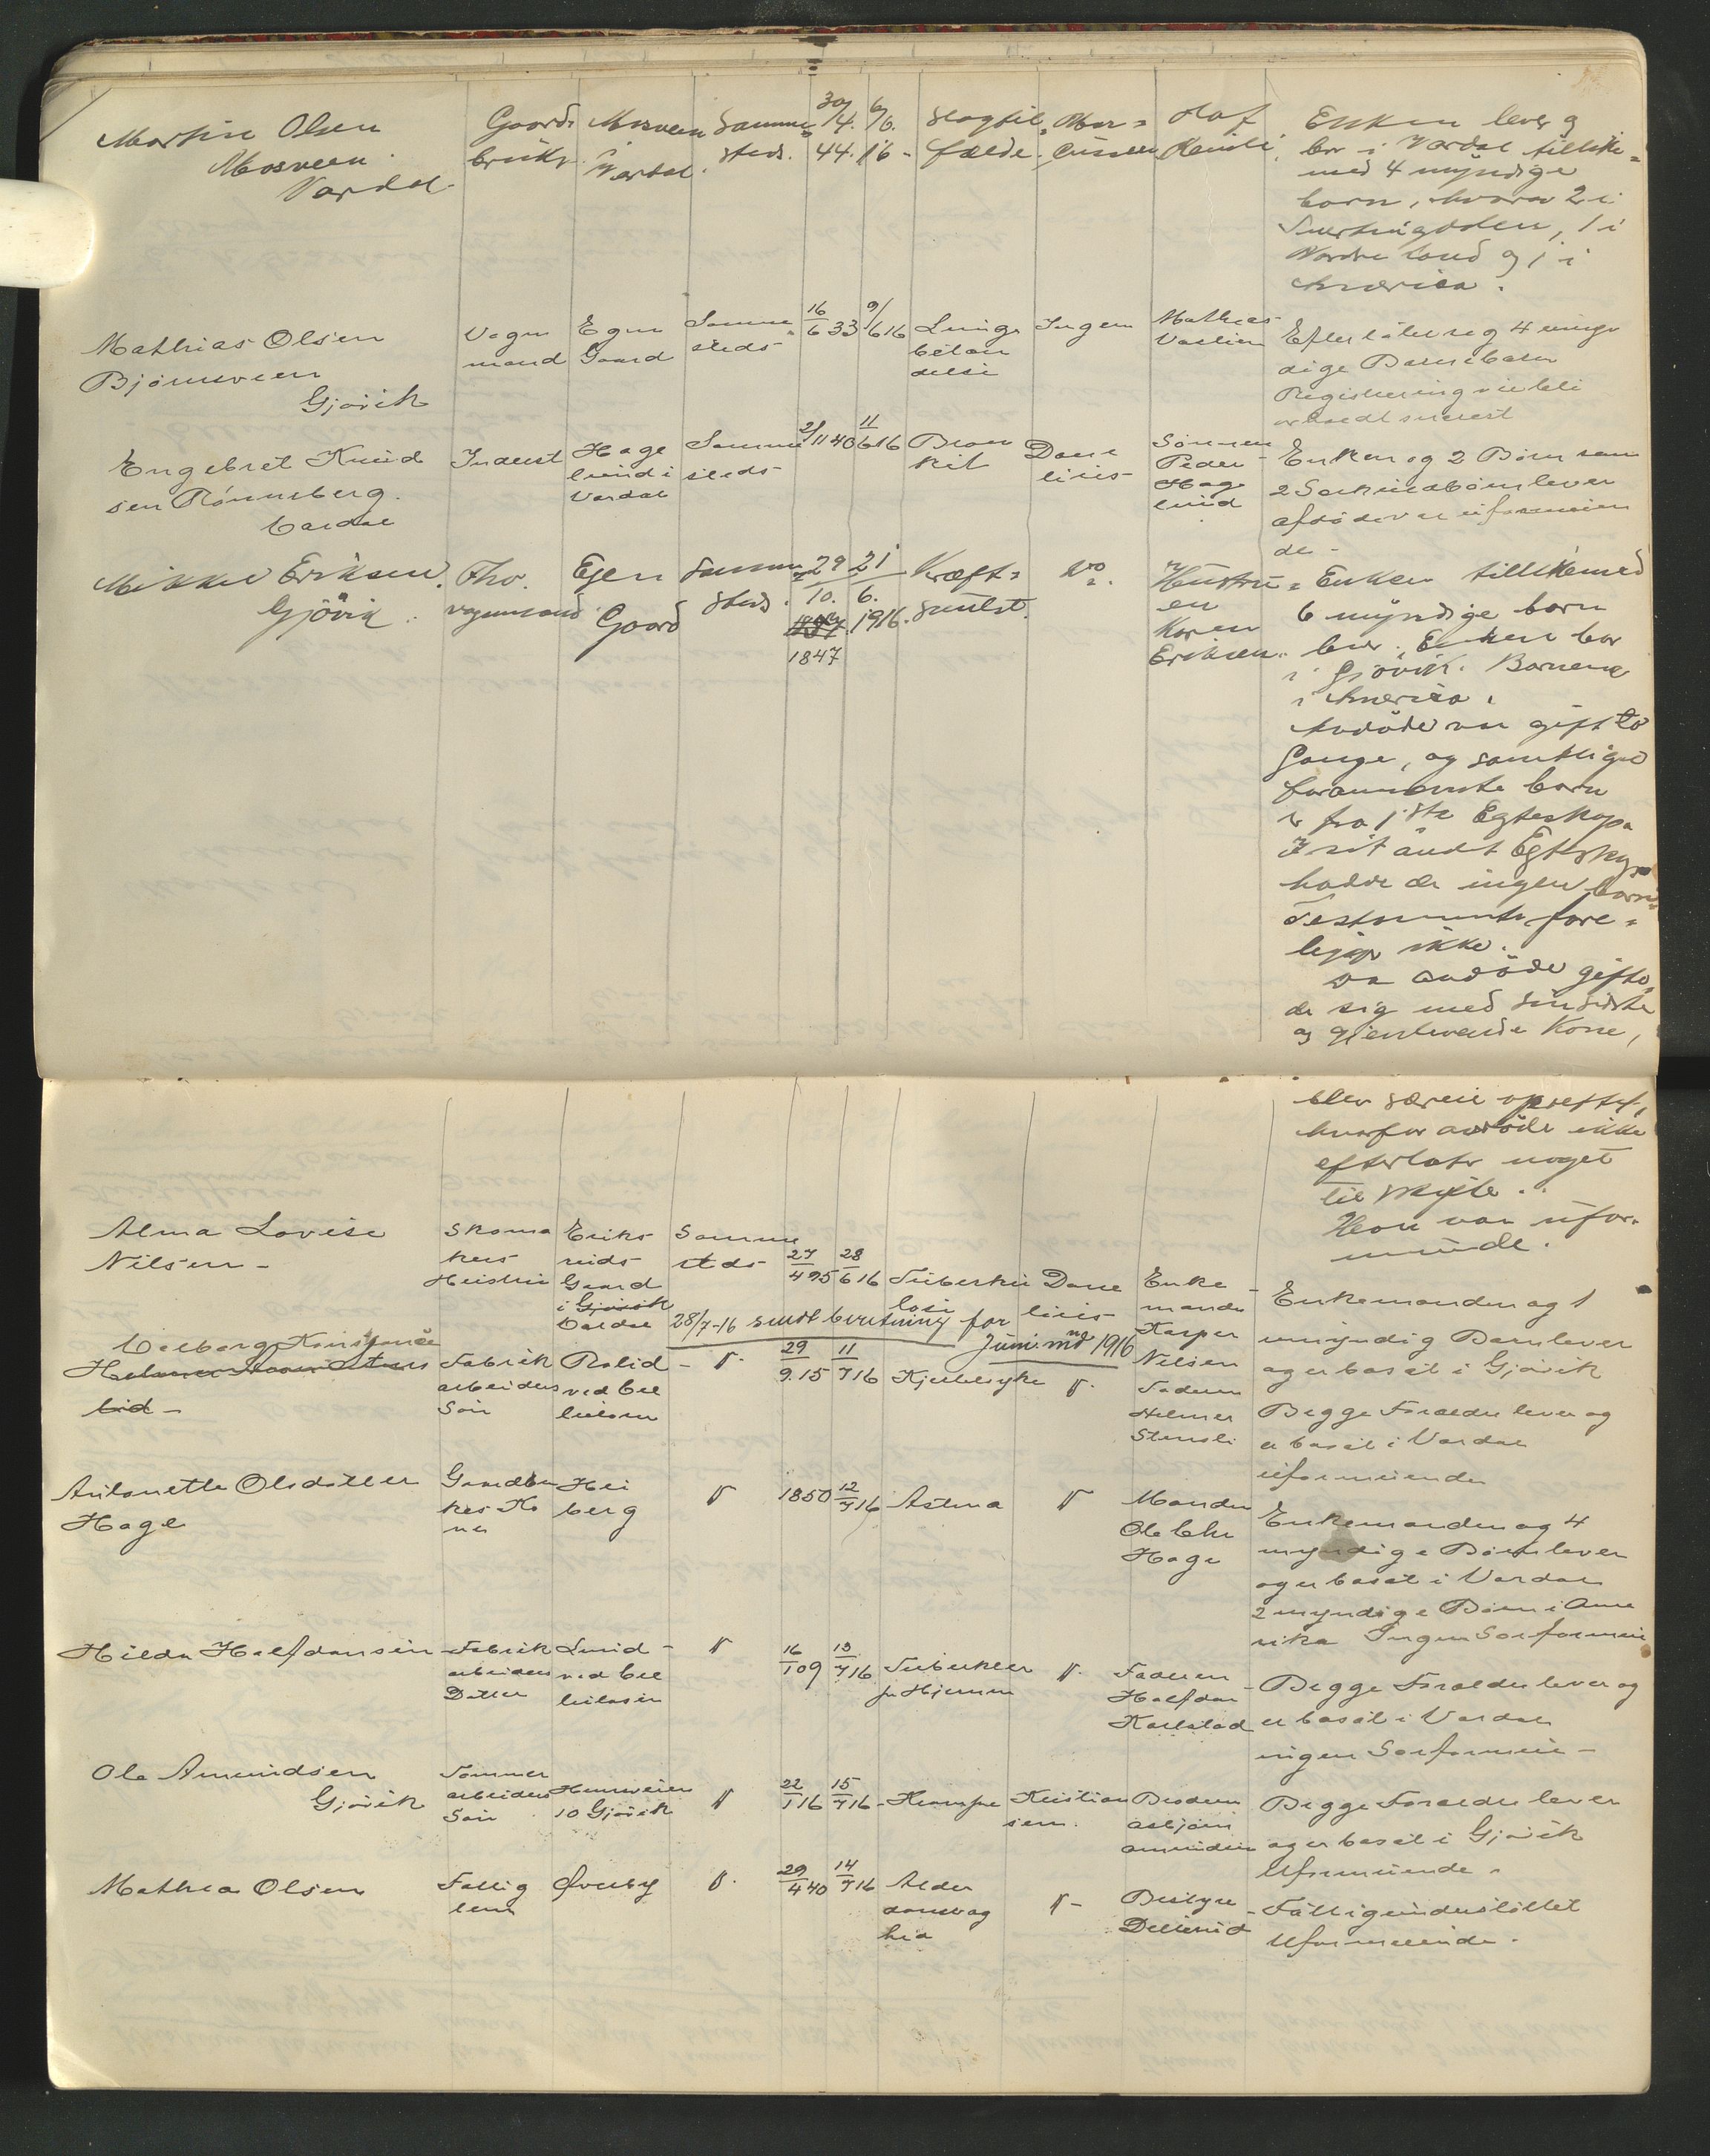 Martin Olsen
Mosveen
Vardal.
Gaard-
bruker
Mosveen
i Vardal.
Samme-
steds.
30/4. 44.
6/6. 16
Slagtil-
fælde.
Olaf
Enken lever og
bor i Vardal tillike-
med 4 myndige
barn, hvorav 2 i
Snertingdalen, 1 i
Nordre Land og 1 i
Amerika.
Mathias Olsen
Bjørnsveen
Gjøvik
Vogn
mand
Egen
Gaard
Samme
steds
16/6 33
9/6 16
Lunge
betæn
delse
Ingen
Mathias
Efterlater seg 4 myn
dige Barnebarn
Registrering vil bli
Engebret Knud
sen Rønneberg.
Vardal
Inderst
Hage
lund i
Vardal
Samme
steds
2/11 40
11/6 16
Bron
kit
Dane
lius
Sønnen
Peder
Hage
lund
Enken og 2 Børn samt
2 Særkuldbørn lever
afdøde var uformuen
de -
Mikkel Eriksen.
Gjövik.
Fhv.
vognmand
Egen
Gaard
Samme-
steds.
29/10.
1847
21/6.
1916.
Kræft-
svulst.
Do.
Hustru-
en
Karen
Eriksen.
Enken tillikemed
6 myndige barn
lever. Enken bor
i Gjövik. Barnene
i Amerika.
Avdöde var gift to
Gange, og samtlige
forannevnte barn
er fra 1ste Egteskap.
I sit andet Egteskap
hadde de ingen barn.
Testamente fore-
ligger ikke.
Da avdöde gifte-
de sig med sin sidste
og gjenlevende Kone,
blev særeie oprettet,
hvorfor avdöde ikke
efterlater noget
til skifte.
Han var ufor-
muende.
Alma Lovise
Nilsen -
Skoma
kers
Hustru
Eriks
ruds
Gaard
i Gjøvik
Vardal
Samme
steds
27/4 95
28/6 16
Tuberku
lose
Dane
lius
Enke
manden
Kasper
Nilsen
Enkemanden og 1
umyndig Barn lever
og er bosat i Gjøvik
28/7-16 sendt beretning for
Juni md 1916
Valborg Konstanse
Fabrik
arbeiders
Søn
Rolid
ved Cel
lulosen
29/9. 15
11/7 16
Faderen
Helmer
Stensli
Begge Forældre lever og
er bosat i Vardal
uformuende
Antonette Olsdatter
Hage
Gaardbru
kers Ko
ne
Hei
berg
1850
12/7 16
Astma
Manden
Ole Chr
Hage
Enkemanden og 4
myndige Børn lever
og er bosat i Vardal
2 myndige Børn i Ame
rika Ingen Særformue
Hilda Halfdansen
Fabrik
arbeiders
Datter
Lund
ved Cel
lulosen
16/1 09
13/7 16
Tuberkler
paa Hjernen
Faderen
Halfdan
Karlstad
Begge Forældre lever og
er bosat i Vardal
ingen Særformue -
Ole Amundsen
Gjøvik
Tømmer
arbeiders
Søn
Hunsveien
10 Gjøvik
22/1 16
15/7 16
Krampe
Kristian
sen.
Broderen
Asbjørn
Amundsen
Begge Forældre lever
og er bosat i Gjøvik
Uformuende.
Mathea Olsen
Fattig
lem
Øverby
29/4 40
14/7 16
Alder
domsvag
hed
Bestyrer
Fattigunderstøttet
Uformuende.